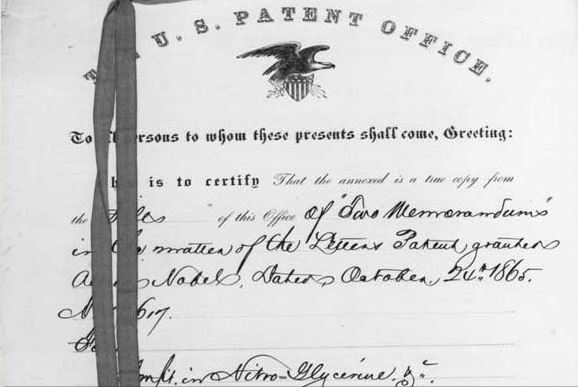 U. S. PATENT OFFICE.
To all persons to whom these presents shall come, Greeting:
is to certify That the annexed is a true copy from
the Files of this Office of "Two Memorandums"
in the matter of the Letters Patent granted
Nobel, Dated October, 24th 1865.
617.
in Nitro-Glycerine